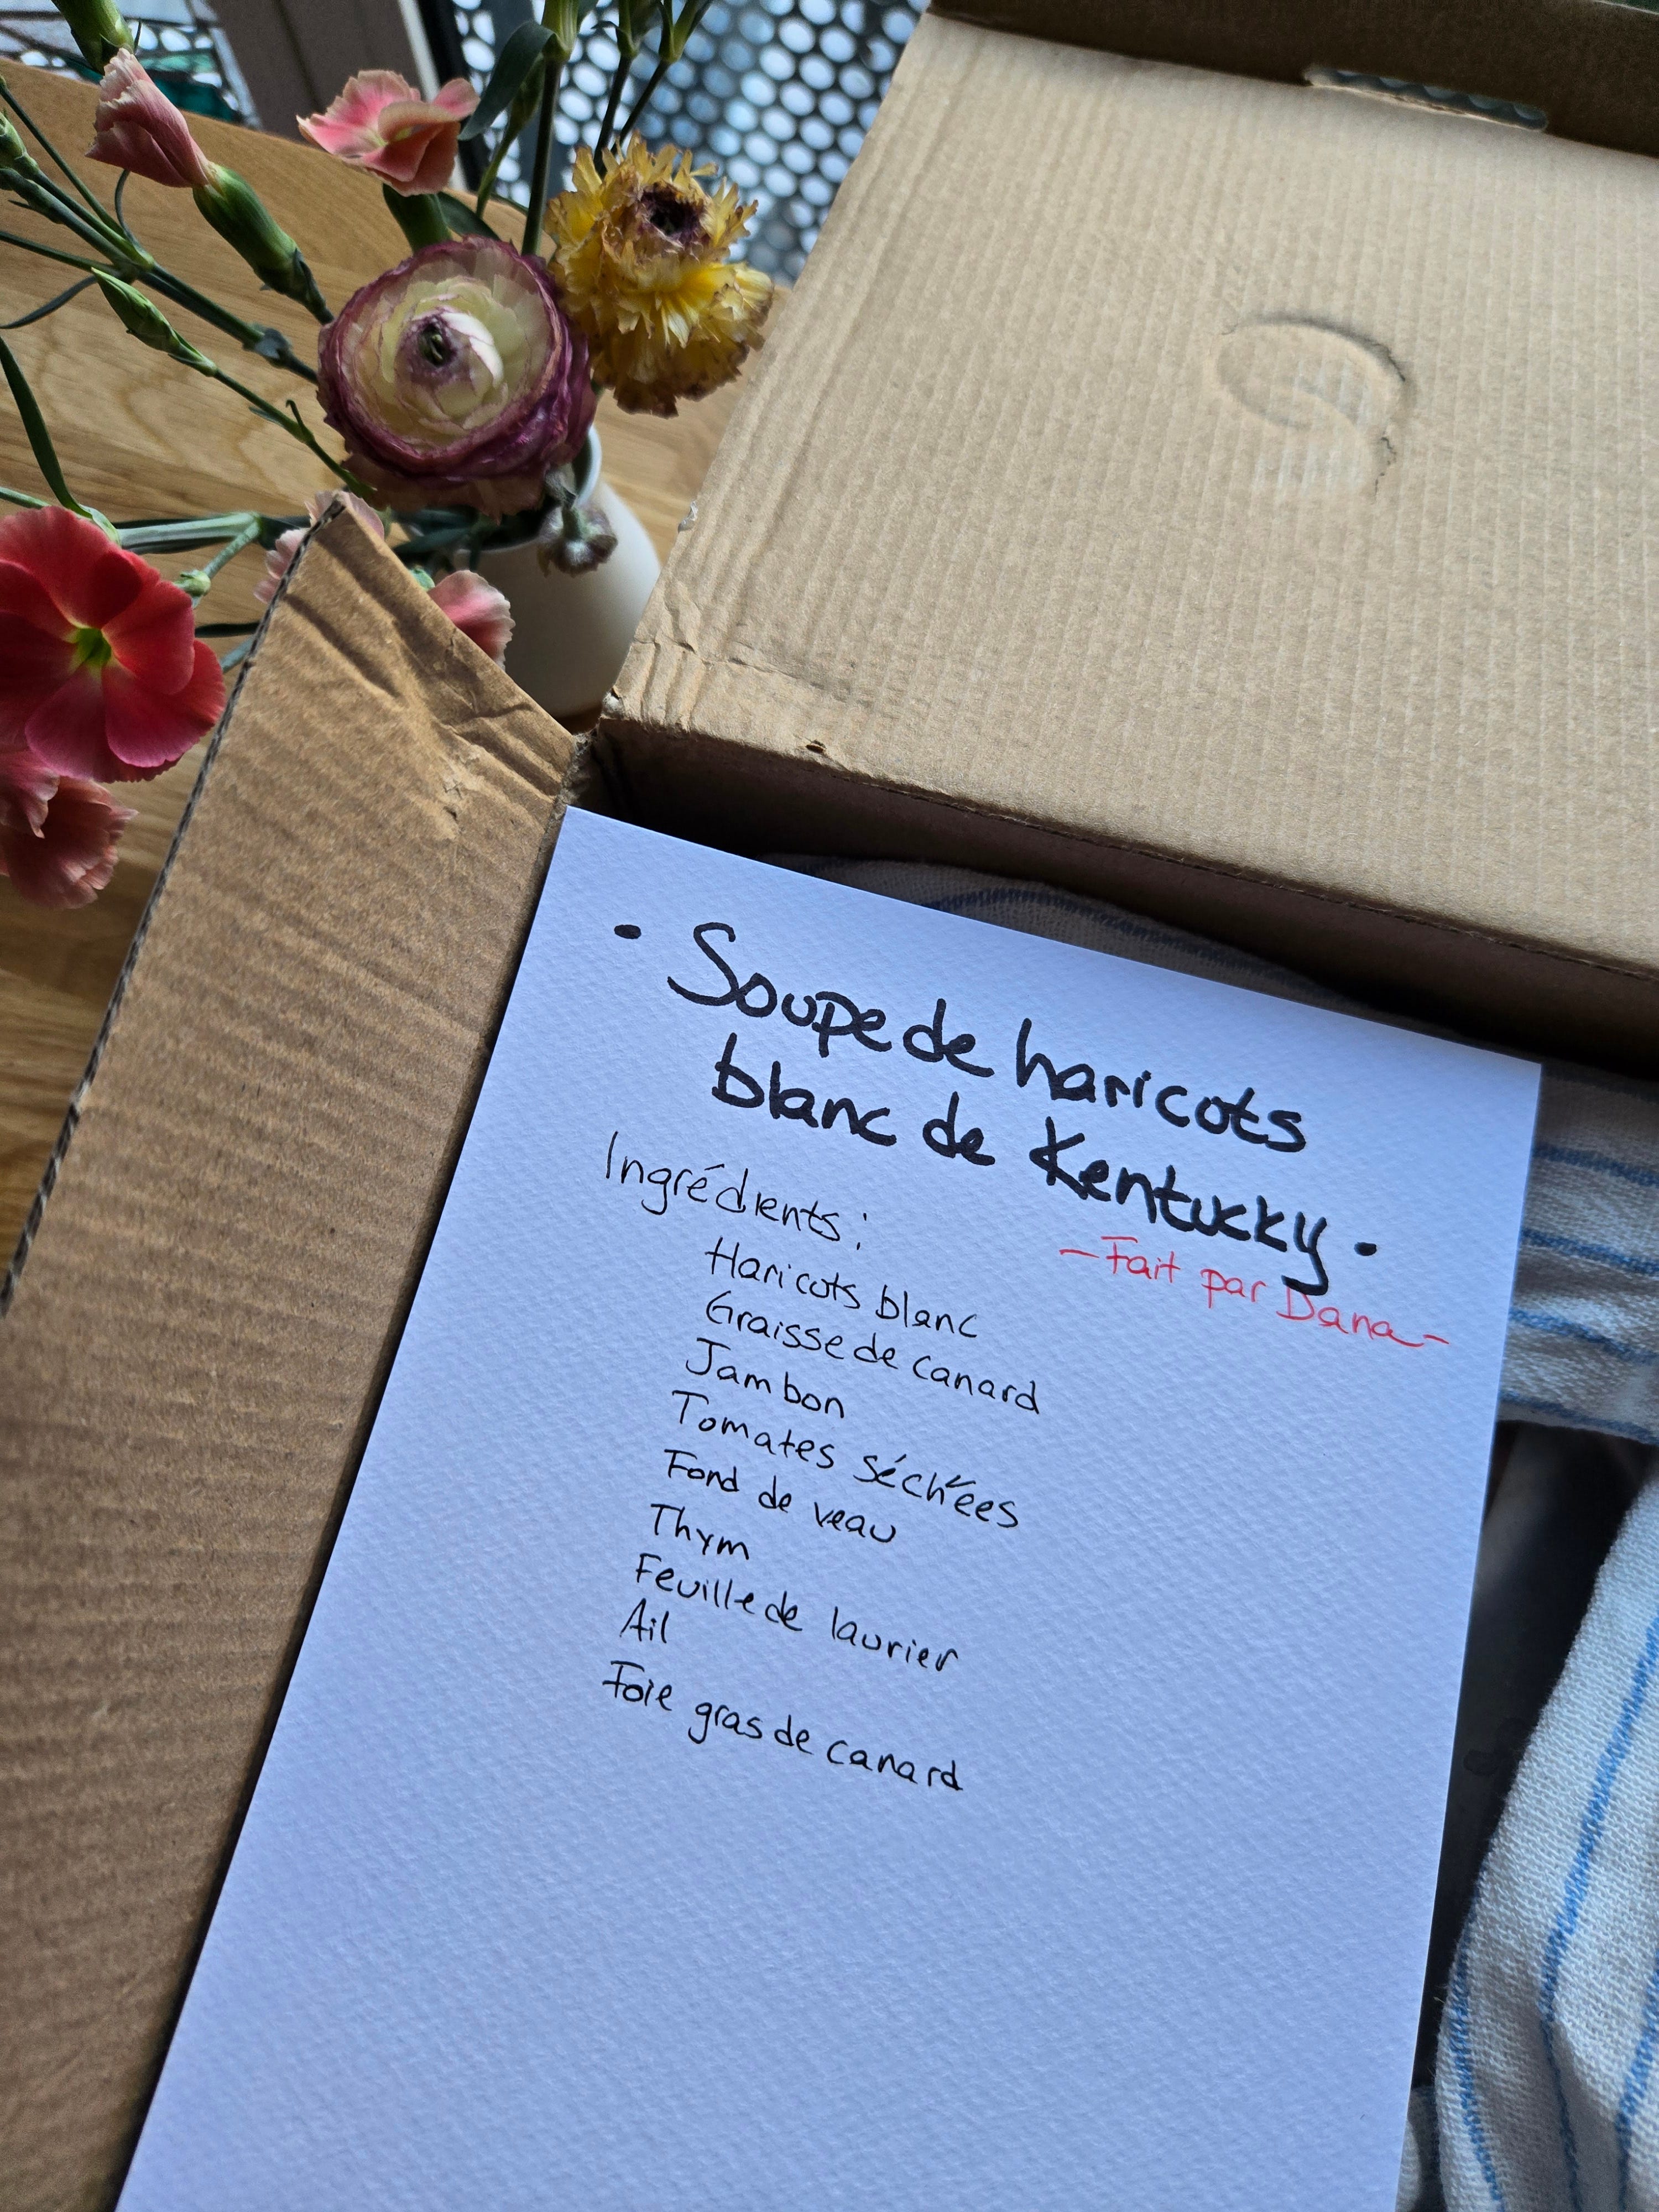 • Soupe de haricots
blanc de Kentucky •
- Fait par Dana -
Ingrédients :
Haricots blanc
Graisse de canard
Jambon
Tomates séchées
Fond de veau
Thym
Feuille de laurier
Ail
Foie gras de canard